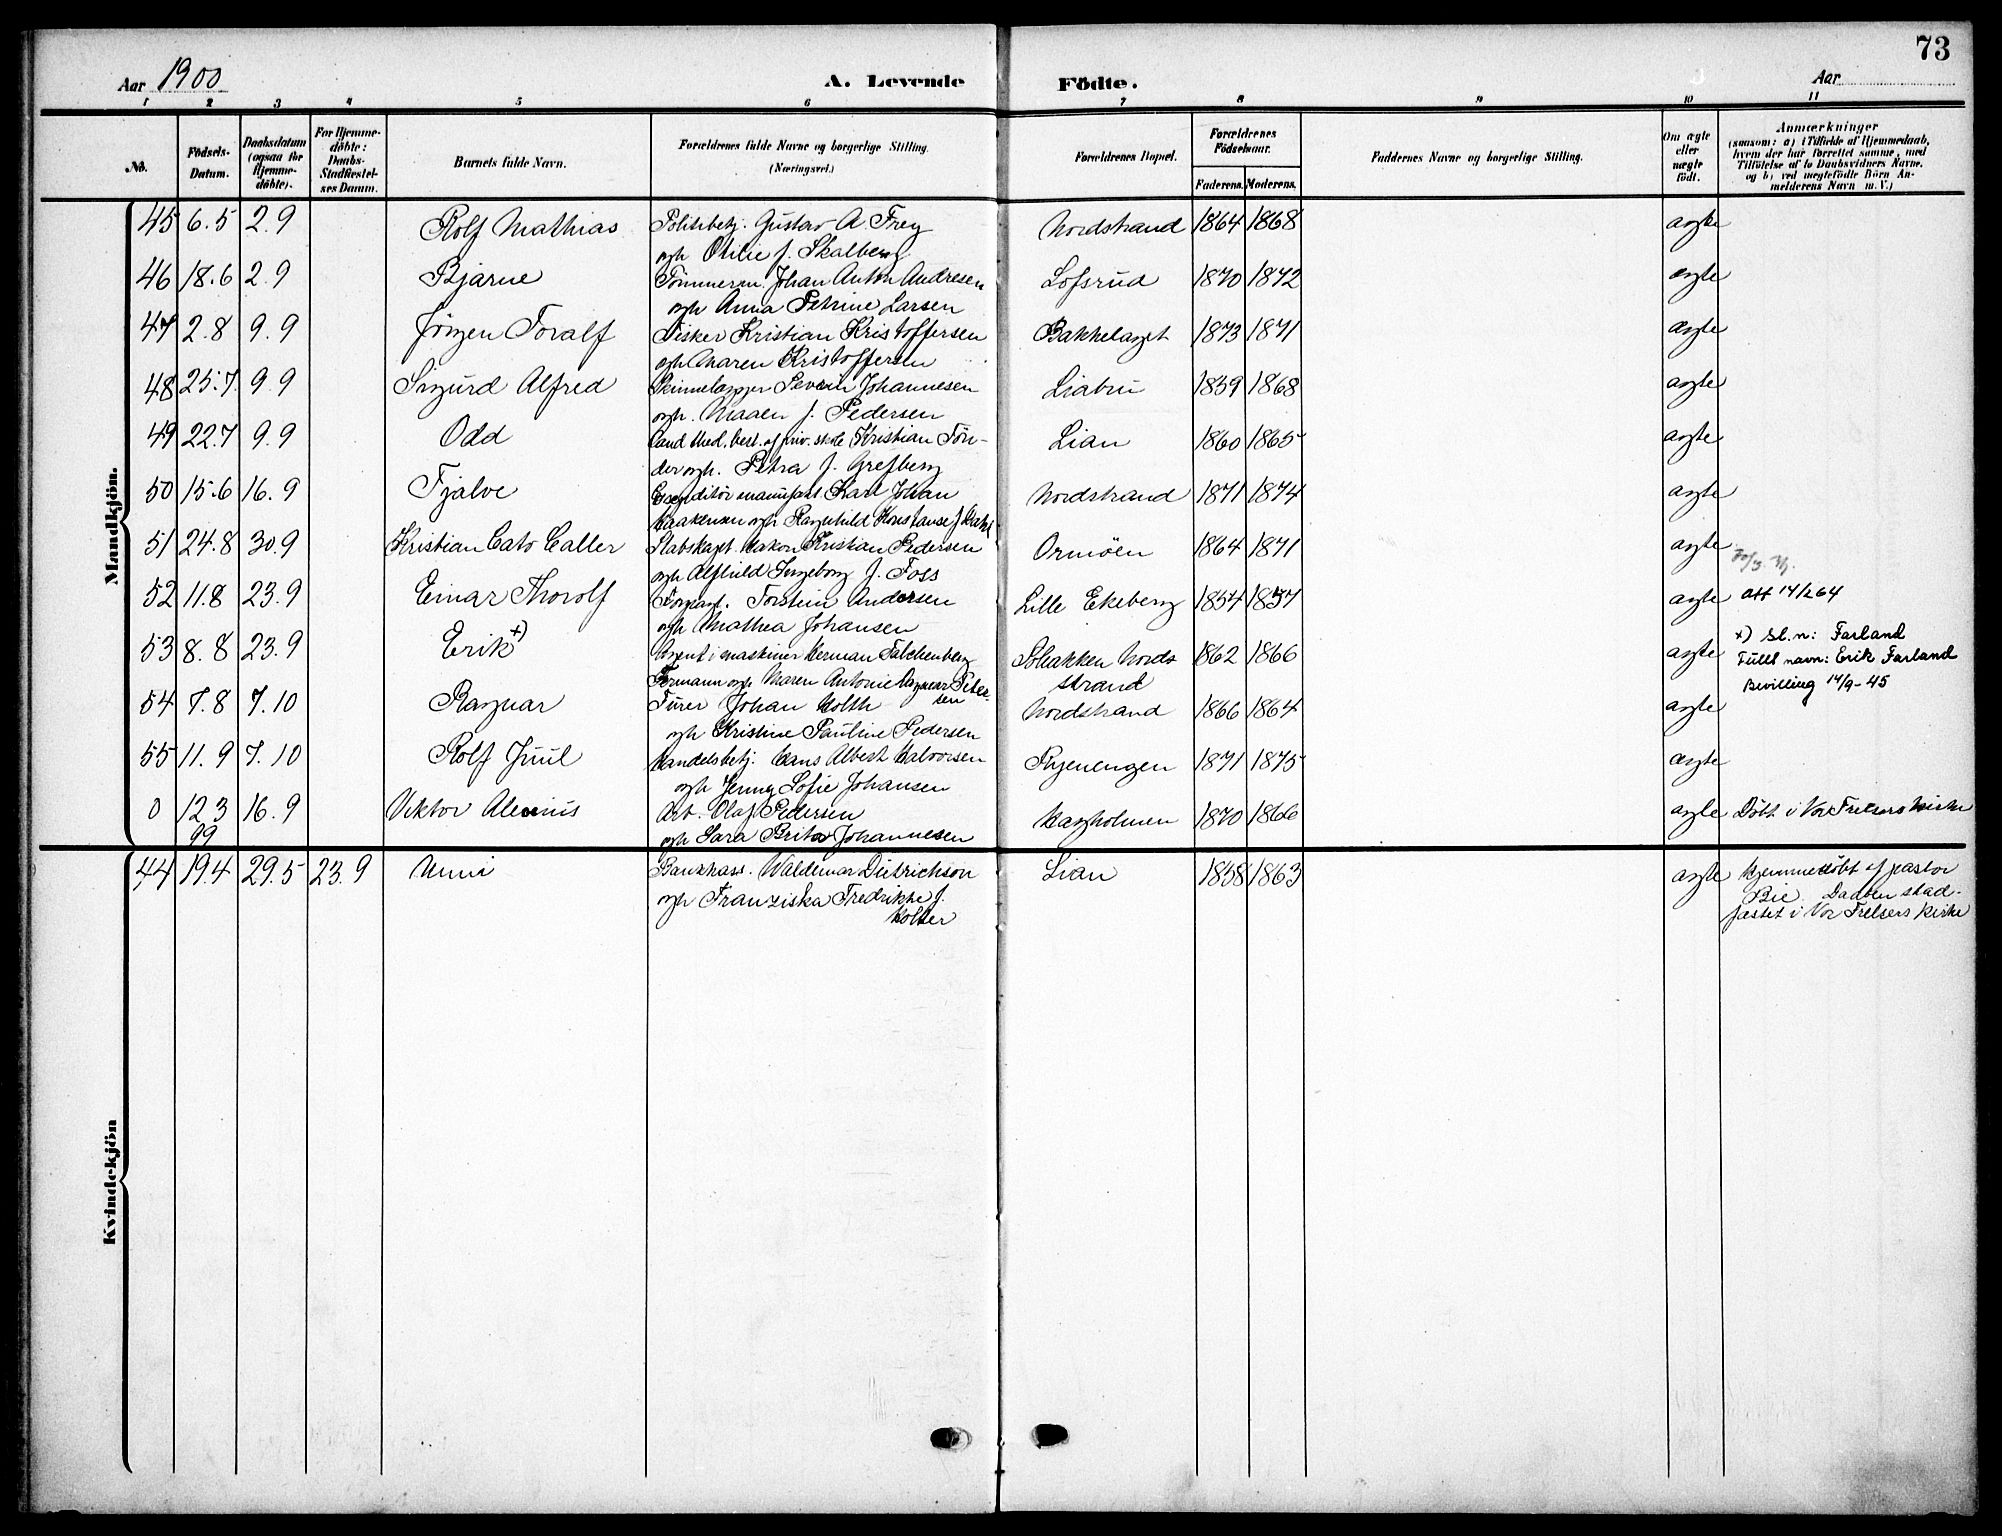 73
Aar 1900
A. Levende
Födte.
Aar
1 2 3 4 5 6 7 8 9 10 11
No.
Födsels-Datum.
Daabsdatum (ogsaa for Hjemme-döbte).
For Hjemme-döbte: Daabs-Stadfæstel-ses Datum.
Barnets fulde Navn.
Forældrenes fulde Navne og borgerlige Stilling. (Næringsvei.)
Forældrenes Bopæl.
Forældrenes Födselsaar.
Faderens. Moderens.
Faddernes Navne og borgerlige Stilling.
Om ægte eller uægte födt.
Anmærkninger
(saasom: a) i Tilfælde af Hjemmedaab,
hvem der har forrettet samme, med
Tilföielse af to Daabsvidners Navne.
og b) ved uægtefödte Börn An-
melderens Navn m. V.)
Mandkjön.
45 6.5 2.9 Rolf Mathias Politibetj. Gustav A. Frey Nordstrand 1864 1868 ægte
ogh Otilie f. Skalberg
46 18.6 2.9 Bjarne Tømmerm. Johan Anton Andresen Lofsrud 1870 1872 ægte
ogh Anna Petrine Larsen
47 2.8 9.9 Jörgen Toralf Fisker Kristian Kristoffersen Bækkelaget 1873 1871 ægte
ogh Maren Kristoffersen
48 25.7 9.9 Sigurd Alfred Severin Johannesen Liabru 1859 1868 ægte
ogh. Maaen f. Pedersen
49 22.7 9.9 Odd Cand Med. best. af priv. skole Kristian Tön- Lian 1860 1865 ægte
der ogh. Petra f. Grefberg
50 15.6 16.9 Fjalve Karl Johan Nordstrand 1871 1874 ægte
Haakensen ogh Ragnhild Konstanse f.
51 24.8 30.9 Kristian Cato Caller Stabskapt. Hakon Kristian Pedersen Ormöen 1864 1871 ægte
ogh Alfhild Ingeborg f. Foss
52 11.8 23.9 Einar Thorolf Forpagt. Torstein Andersen Lille Ekeberg 1854 1857 ægte att 14/2 64
ogh Mathea Johansen
53 8.8 23.9 Erik x) Agent i maskiner Herman Falchenberg Solbakken Nord- 1862 1866 ægte x) Sl.n: Farland
Fullt navn: Erik Farland
Bevilling 14/9-45
Formann ogh Maren Antonie Peter- strand
sen
54 7.8 7.10 Ragnar Furer Johan Holth Nordstrand 1866 1864 ægte
ogh Kristine Pauline Pedersen
55 11.9 7.10 Rolf Juul Handelsbetj. Hans Albert Halvorsen Ryenengen 1871 1875 ægte
ogh Jenny Sofie Johansen
0 12 3 99 16.9 Viktor Alexius Arb. Olaf Pedersen Hagholmen 1870 1866 ægte Döbt i Vor Frelsers Kirke
ogh Sara Brita Johannesen
Kvindekjön
44 19.4 29.5 23.9 Unni Bankkass. Waldemar Dietrichson Lian 1858 1863 ægte Hjemmedöbt af pastor
ogh Franziska Fredrikke f. Bie. Daaben stad-
Holter fæstet i Vor Frelsers Kirke